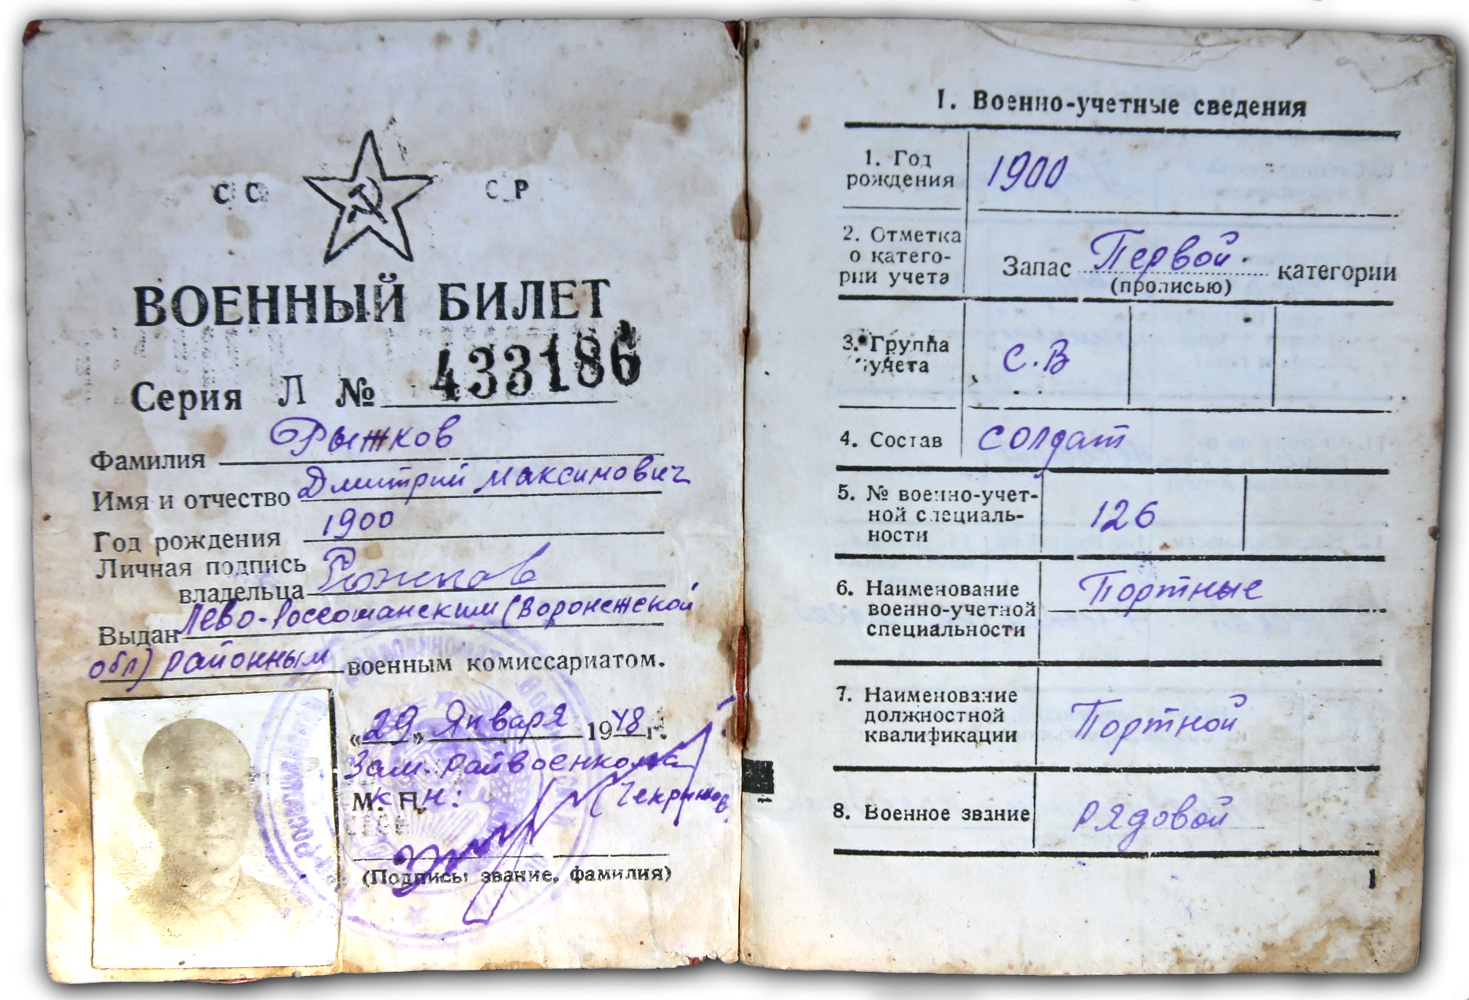 СС СР
ВОЕННЫЙ БИЛЕТ
Серия Л № 433186
Фамилия Рыжков
Имя и отчество Дмитрий Максимович
Год рождения 1900
Личная подпись
владельца Рыжков
Выдан Лево-Россошанским (Воронежской
обл) районным военным комиссариатом.
«29» Января 1948 г.
Зам. райвоенкома
М. П.
(Подпись, звание, фамилия)
I. Военно-учетные сведения
1. Год
рождения
1900
2. Отметка
о катего-
рии учета
Запас Первой категории
(прописью)
3. Группа
учета
С.В
4. Состав солдат
5. № военно-учет-
ной специаль-
ности
126
6. Наименование
военно-учетной
специальности
Портные
7. Наименование
должностной
квалификации
Портной
8. Военное звание рядовой
1